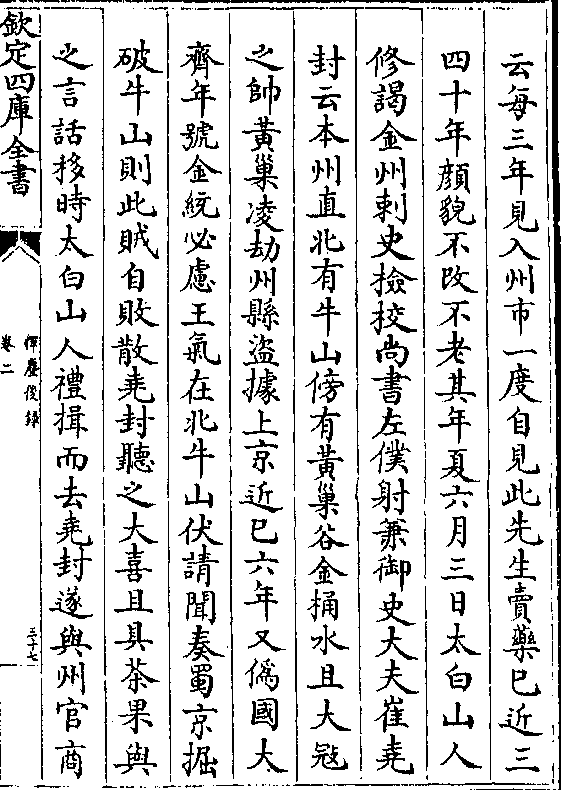 云每三年見入州市一度自見此先生賣藥已近三
四十年顔貌不改不老其年夏六月三日太白山人
修謁金州刺史撿挍尚書左僕射兼御史大夫崔堯
封云本州直北有牛山傍有黃巢谷金桶水且大𡨥
之帥黃巢凌劫州縣盜據上京近已六年又僞國大
齊年號金統必慮王氣在北牛山伏請聞奏蜀京掘
破牛山則此賊自敗散堯封聽之大喜且具茶果與
之言話移時太白山人禮揖而去堯封遂與州官商
欽定四庫全書
卷二
三十七